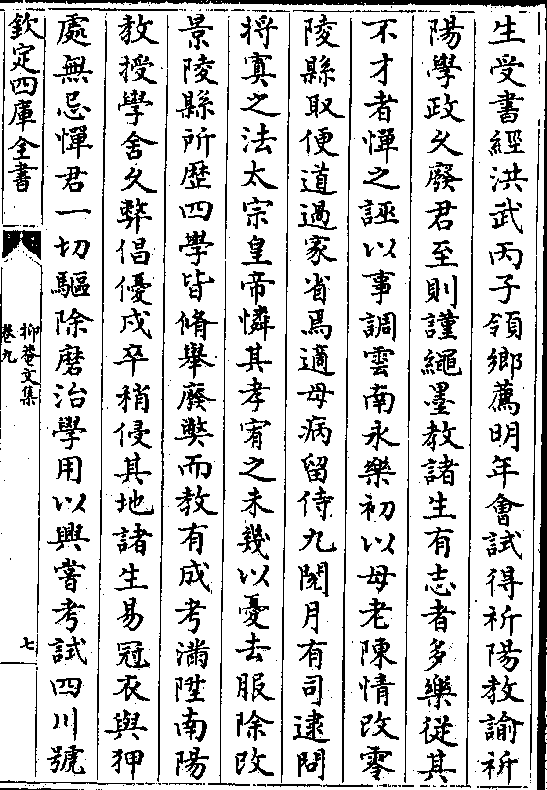 生受書經洪武丙子領鄉薦明年會試得祈陽教諭祈
陽學政久廢君至則謹繩墨教諸生有志者多樂從其
不才者憚之誣以事調雲南永樂初以母老陳情改零
陵縣取便道過家省焉適母病留侍九閱月有司逮問
將寘之法太宗皇帝憐其孝宥之未幾以憂去服除改
景陵縣所歴四學皆脩舉廢獘而教有成考滿陞南陽
教授學舍久弊倡優戍卒稍侵其地諸生易冠衣與狎
處無忌憚君一切驅除磨治學用以興嘗考試四川號
欽定四庫全書
抑菴文集
卷九
七